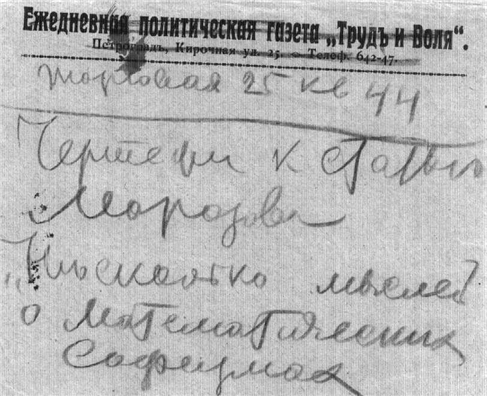 Ежедневная политическая газета „Трудъ и Воля“.
Петроградъ, Кирочная ул. 25. – Телеф. 642-47.
Торговая 25 кв 44
Чертежи к статьѣ
Морозова
„Нѣсколько мыслей
о математических
софизмах